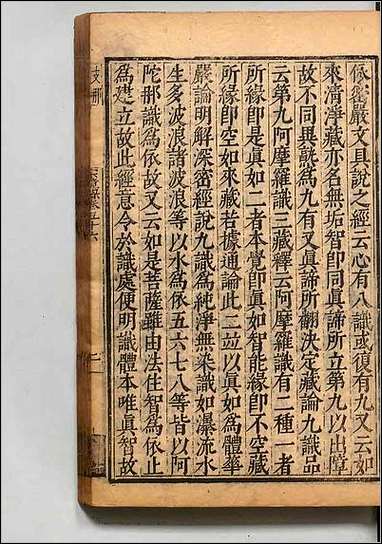 依密嚴文具說之經云心有八識或復有九又云如
來清淨藏亦名無垢智即同真諦所立第九以出障
故不同異熟為九有又真諦所翻決定藏論九識品
云第九阿摩羅識三藏釋云阿摩羅識有二種一者
所緣即是真如二者本覺即真如智能緣即不空藏
所緣即空如來藏若據通論此二竝以真如為體華
嚴論明解深密經說九識為純淨無染識如瀑流水
生多波浪諸波浪等以水為依五六七八等皆以阿
陀那識為依故又云如是菩薩雖由法住智為依止
為建立故此經意令於識處便明識體本唯真智故